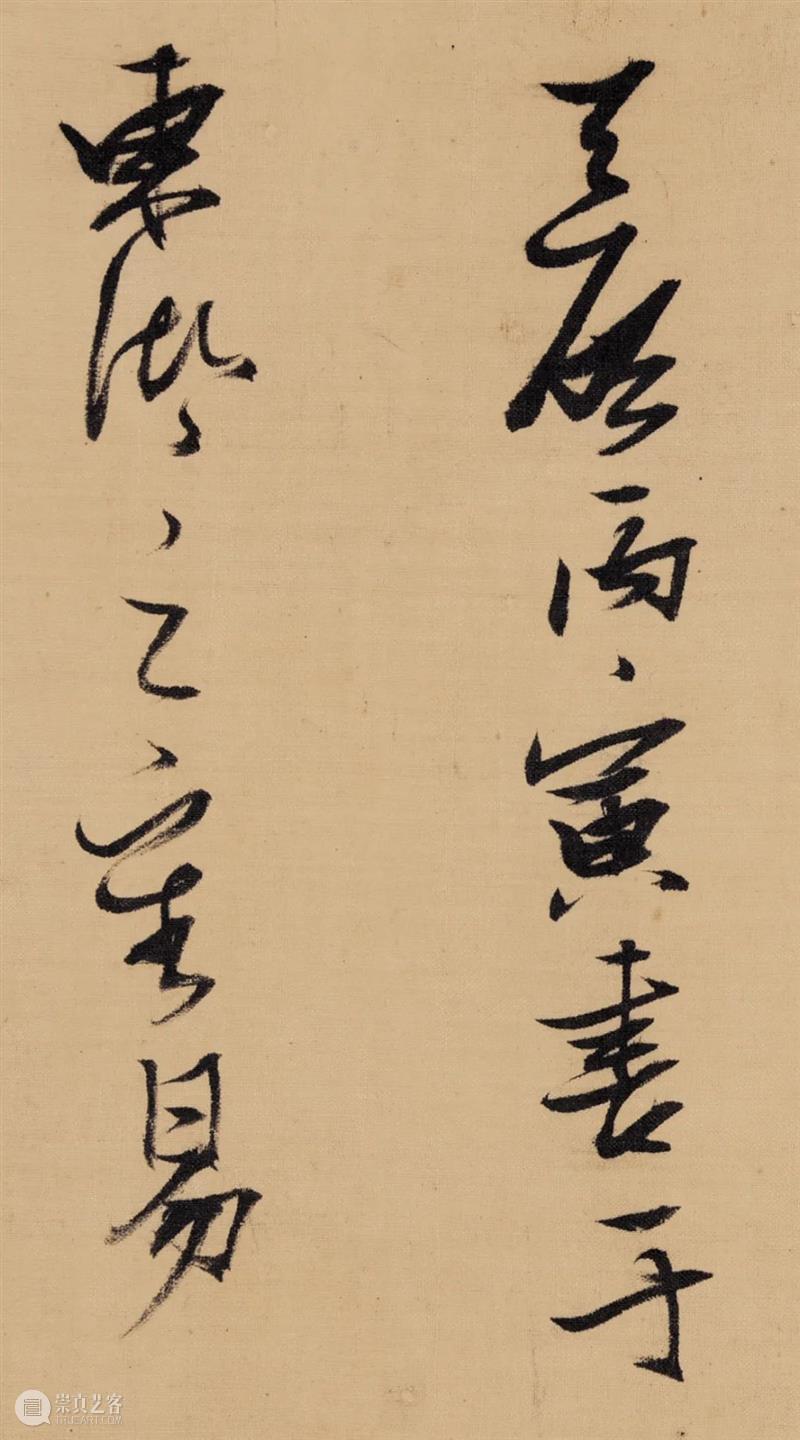 天啟丙寅書于
東之易
崇真艺客
TRUEART.COM